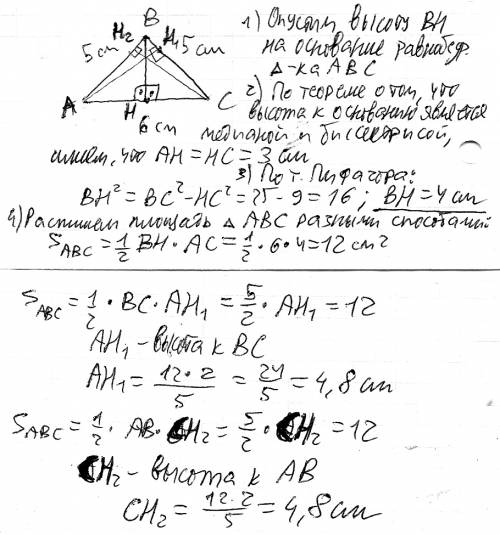 B
H₂
H₁
5 см
5 см
A
H
C
6 см
1) Опустим высоту BH
на основание равнобедр.
Δ-ка ABC
2) По теореме о том, что
высота к основанию является
медианой и биссектрисой,
имеем, что AH = HC = 3 см
3) По т. Пифагора:
BH² = BC² - HC² = 25 - 9 = 16; BH = 4 см
4) Распишем площадь Δ ABC разными способами
S_ABC = 1/2 BH · AC = 1/2 · 6 · 4 = 12 см²
S_ABC = 1/2 · BC · AH₁ = 5/2 · AH₁ = 12
AH₁ - высота к BC
AH₁ = 12·2/5 = 24/5 = 4,8 см
S_ABC = 1/2 · AB · CH₂ = 5/2 · CH₂ = 12
CH₂ - высота к AB
CH₂ = 12·2/5 = 4,8 см